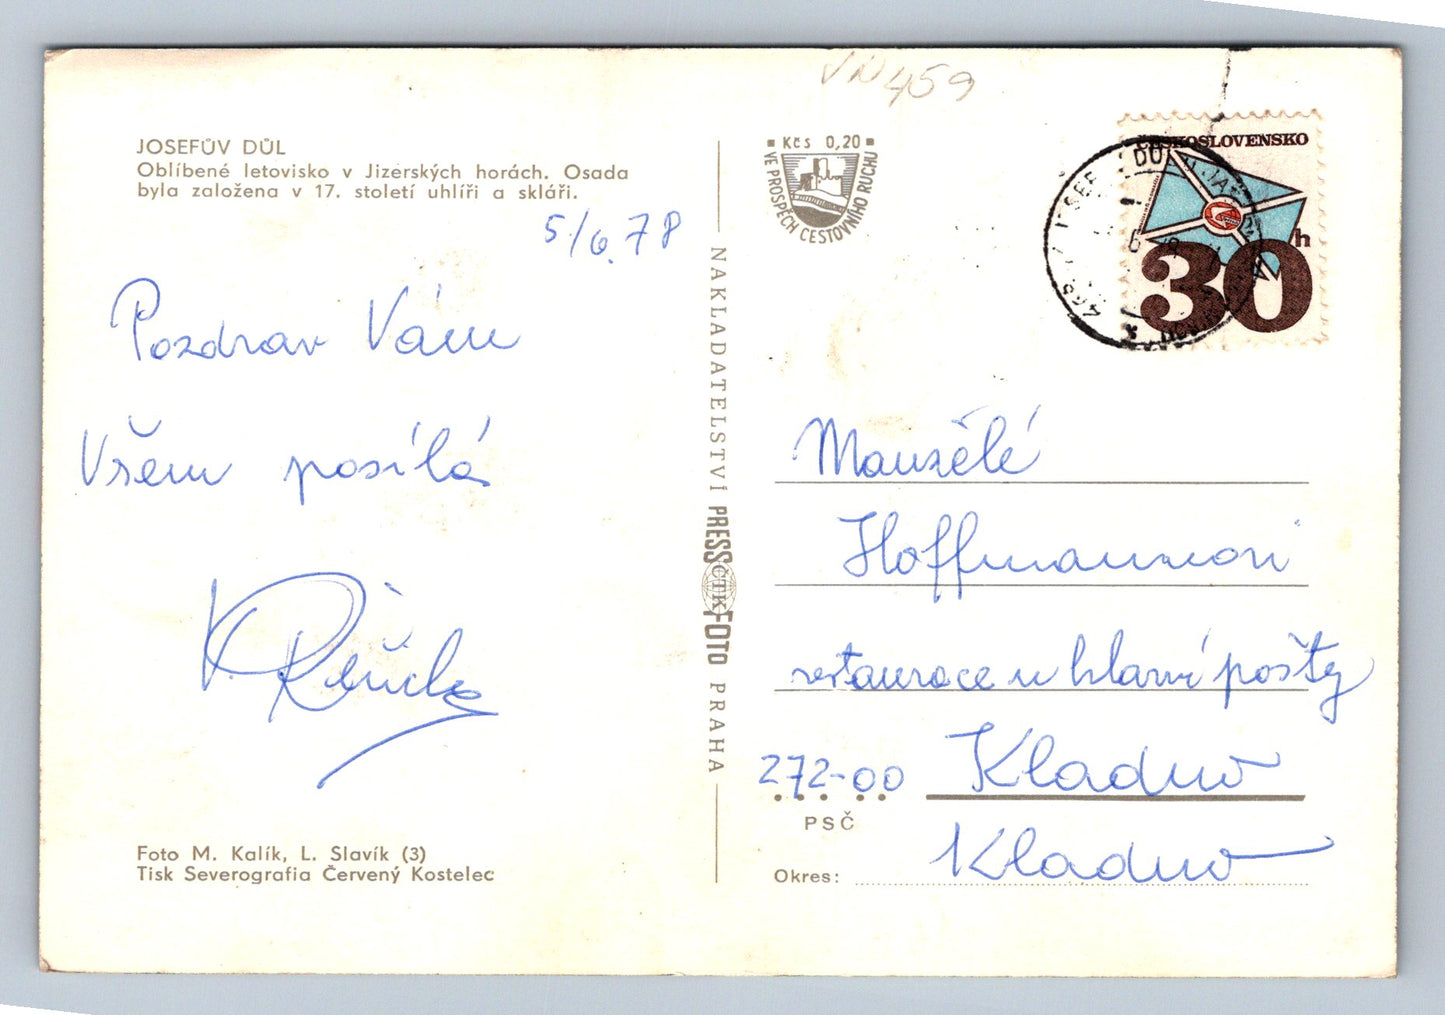 VN 459
JOSEFŮV DŮL
Oblíbené letovisko v Jizerských horách. Osada
byla založena v 17. století uhlíři a skláři.
5/6. 78
Pozdrav Vám
Všem posílá
Foto M. Kalík, L. Slavík (3)
Tisk Severografia Červený Kostelec
NAKLADATELSTVÍ PRESSFOTO PRAHA
ČTK
Kčs 0,20
VE PROSPĚCH CESTOVNÍHO RUCHU
ČESKOSLOVENSKO
30h
Manželé
Hoffmannovi
restaurace u hlavní pošty
272-00 Kladno
PSČ
Kladno
Okres: